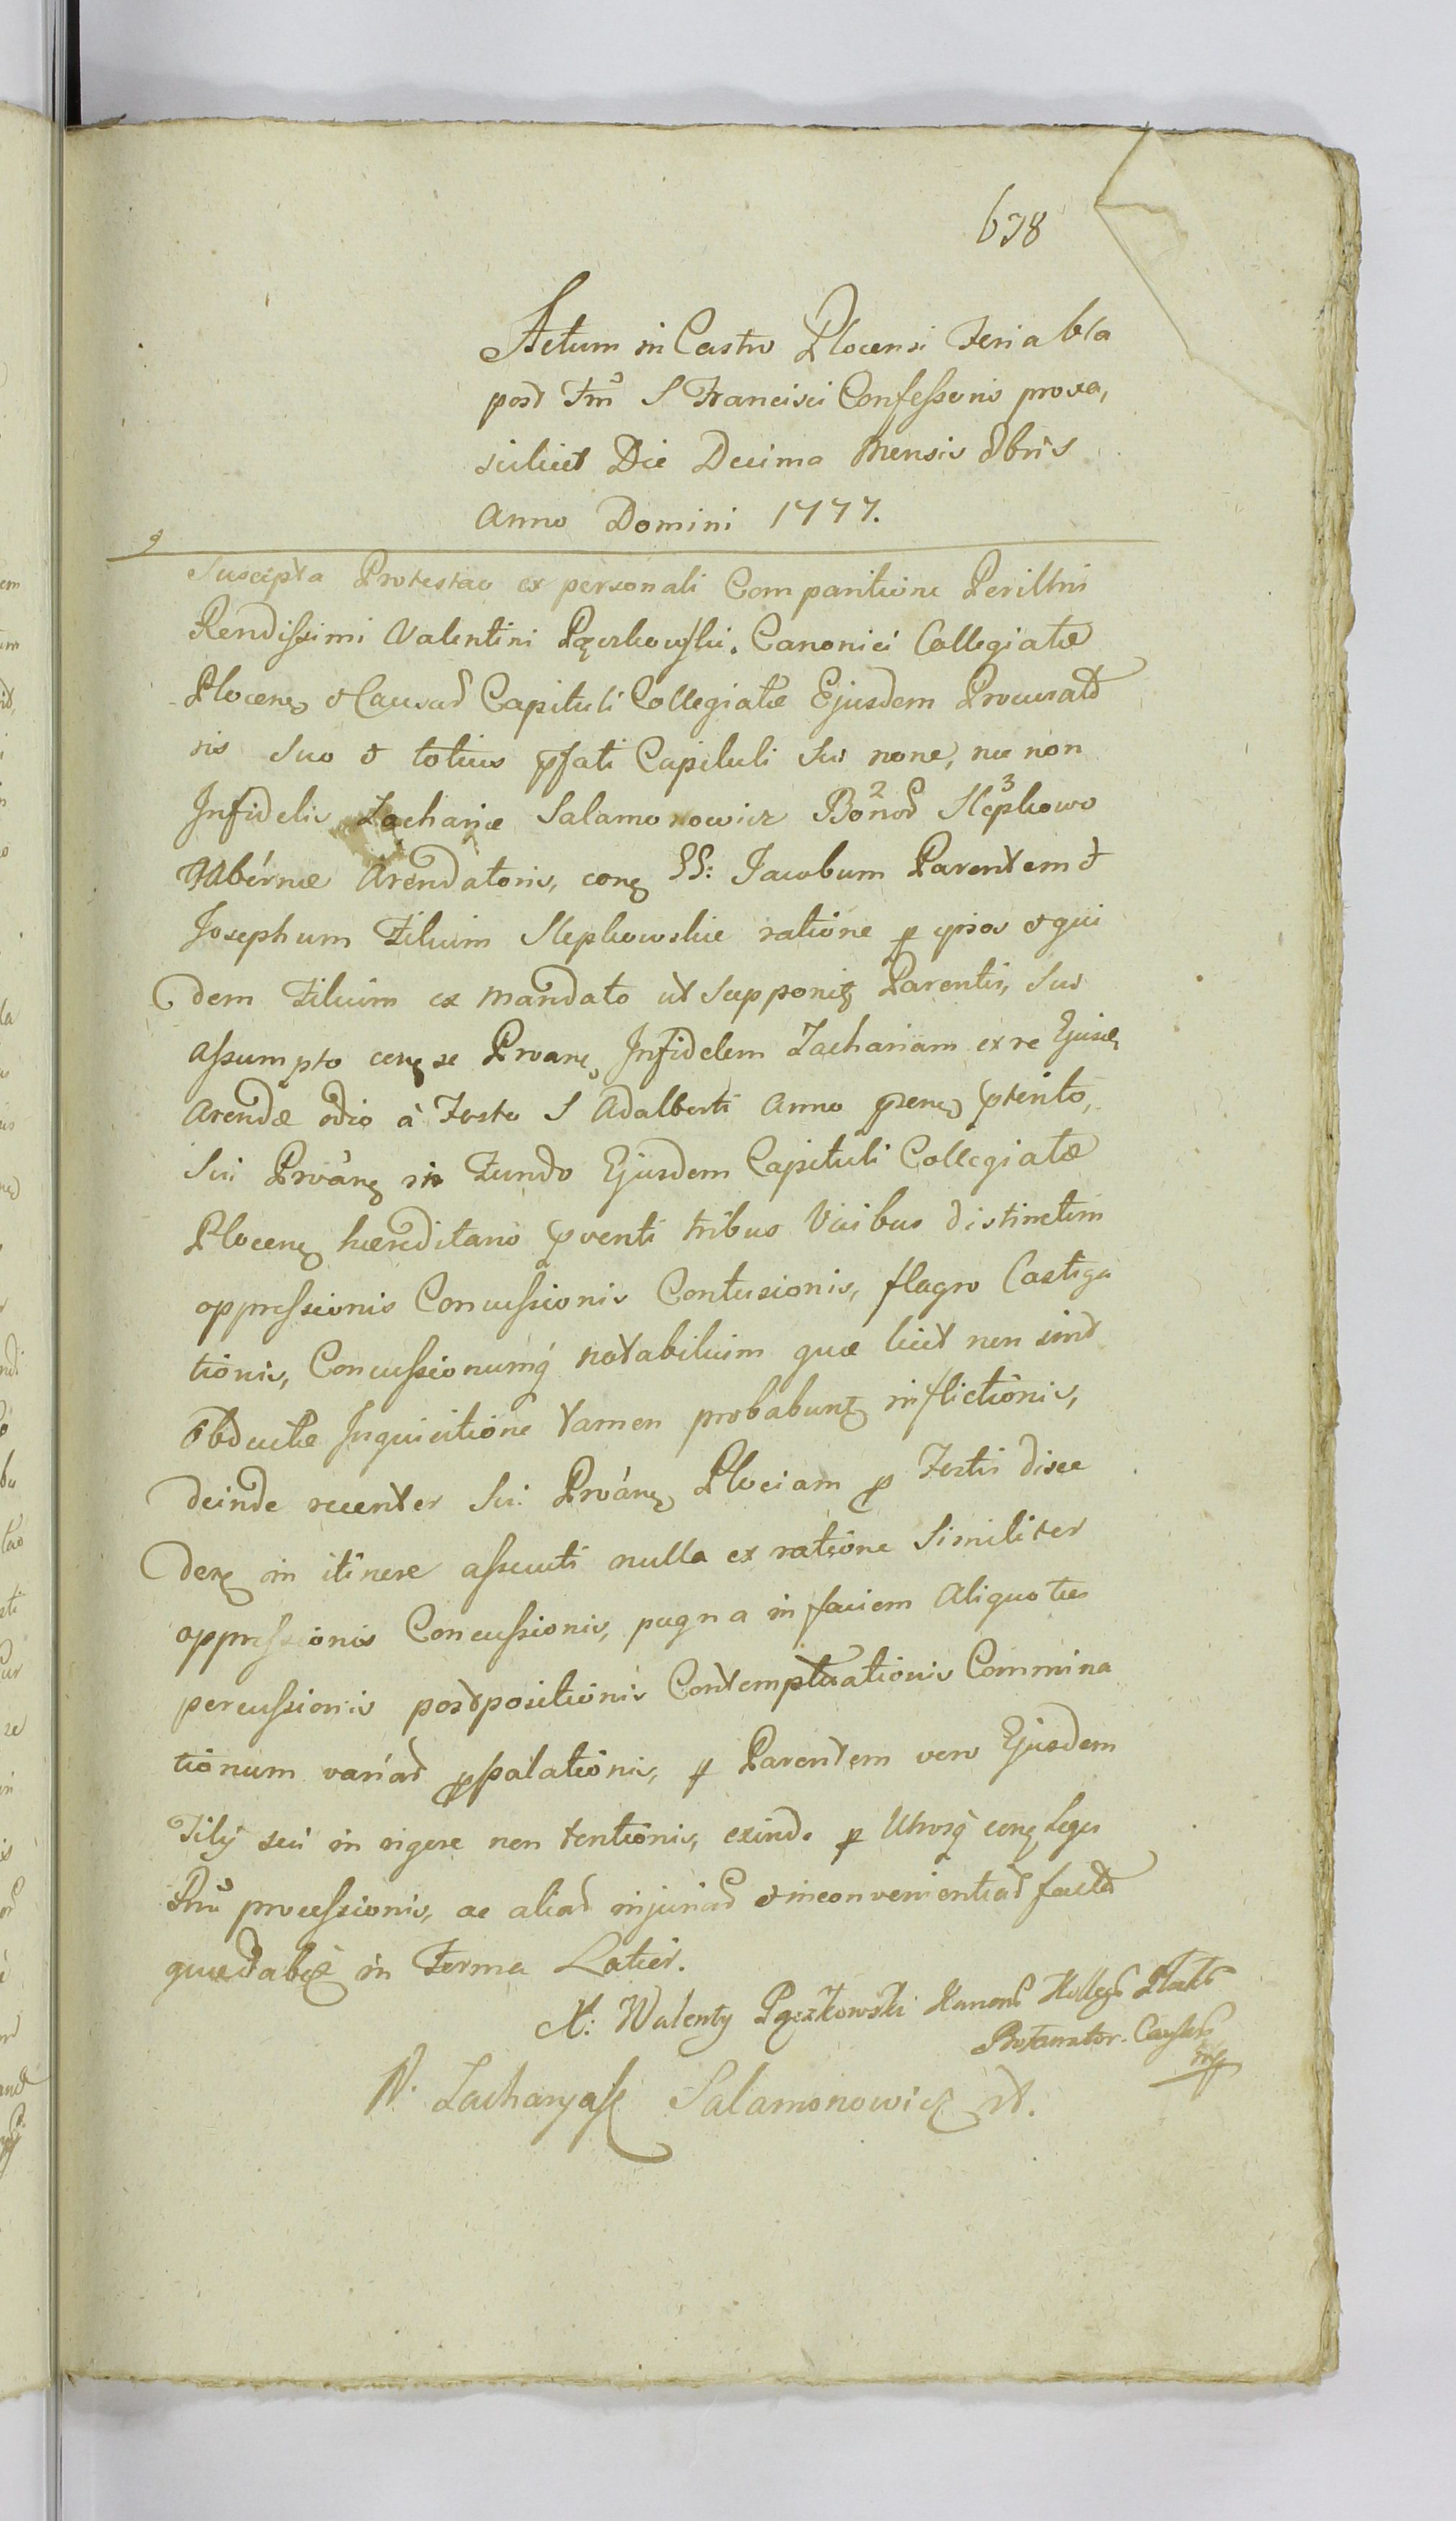 638
Actum in Castro Plocensi Feria 6ta
post Fm̃ S Francisci Confessoris proxa,
scilicet Die Decima Mensis 8bris
Anno Domini 1777.
Suscepta Protestao ex personali Comparitione Perillris
Rendissimi Valentini Pączkowski. Canonici Collegiatæ
Plocens & Causar Capituli Collegiatæ Ejusdem Procurato
ris suo & totius pfati Capituli sui noñe, nec non
Infidelis Zachariæ Salamonowicz Bonor 2 Slepkowo 3
Tabernæ Arendatoris, cong SS: Jacobum Parentem &
Josephum Filium Slepkowskie ratione p ipsos & qui
dem Filium ex Mandato ut supponitg Parentis, sus
assumpto cong se Proañs Infidelem Zachariam ex re Ejusd
Arendæ odio à Festo S Adalberti Anno psens ptento,
Sui Proañg in Fundo Ejusdem Capituli Collegiatæ
Plocens hæreditario pventi tribus Vicibus distinctim
oppressionis Concussionis Contusionis, flagro Castiga
tionis, Concussionumq́ notabilium quæ licet non sint
Obductæ Inquisitione tamen probabung inflictionis,
deinde recenter Sui Proáng Plociam p Festis disce
deng in itinere assecuti nulla ex ratione Similiter
oppressionis Concussionis, pugna in faciem Aliquoties
percussionis postpositionis Contemptuationis Commina
tionum variar ppalationis, p Parentem vero Ejusdem
Filij sui in rigore non tentionis, exinde p Utrosq́ cong leges
Rnũ processionis, ac aliar injuriar & inconvenientiar factar
in Forma Latier.
X: Walenty Pączkowski Kanon Kolleg Płock
mp
N. Zacharyasz Salamonowicz